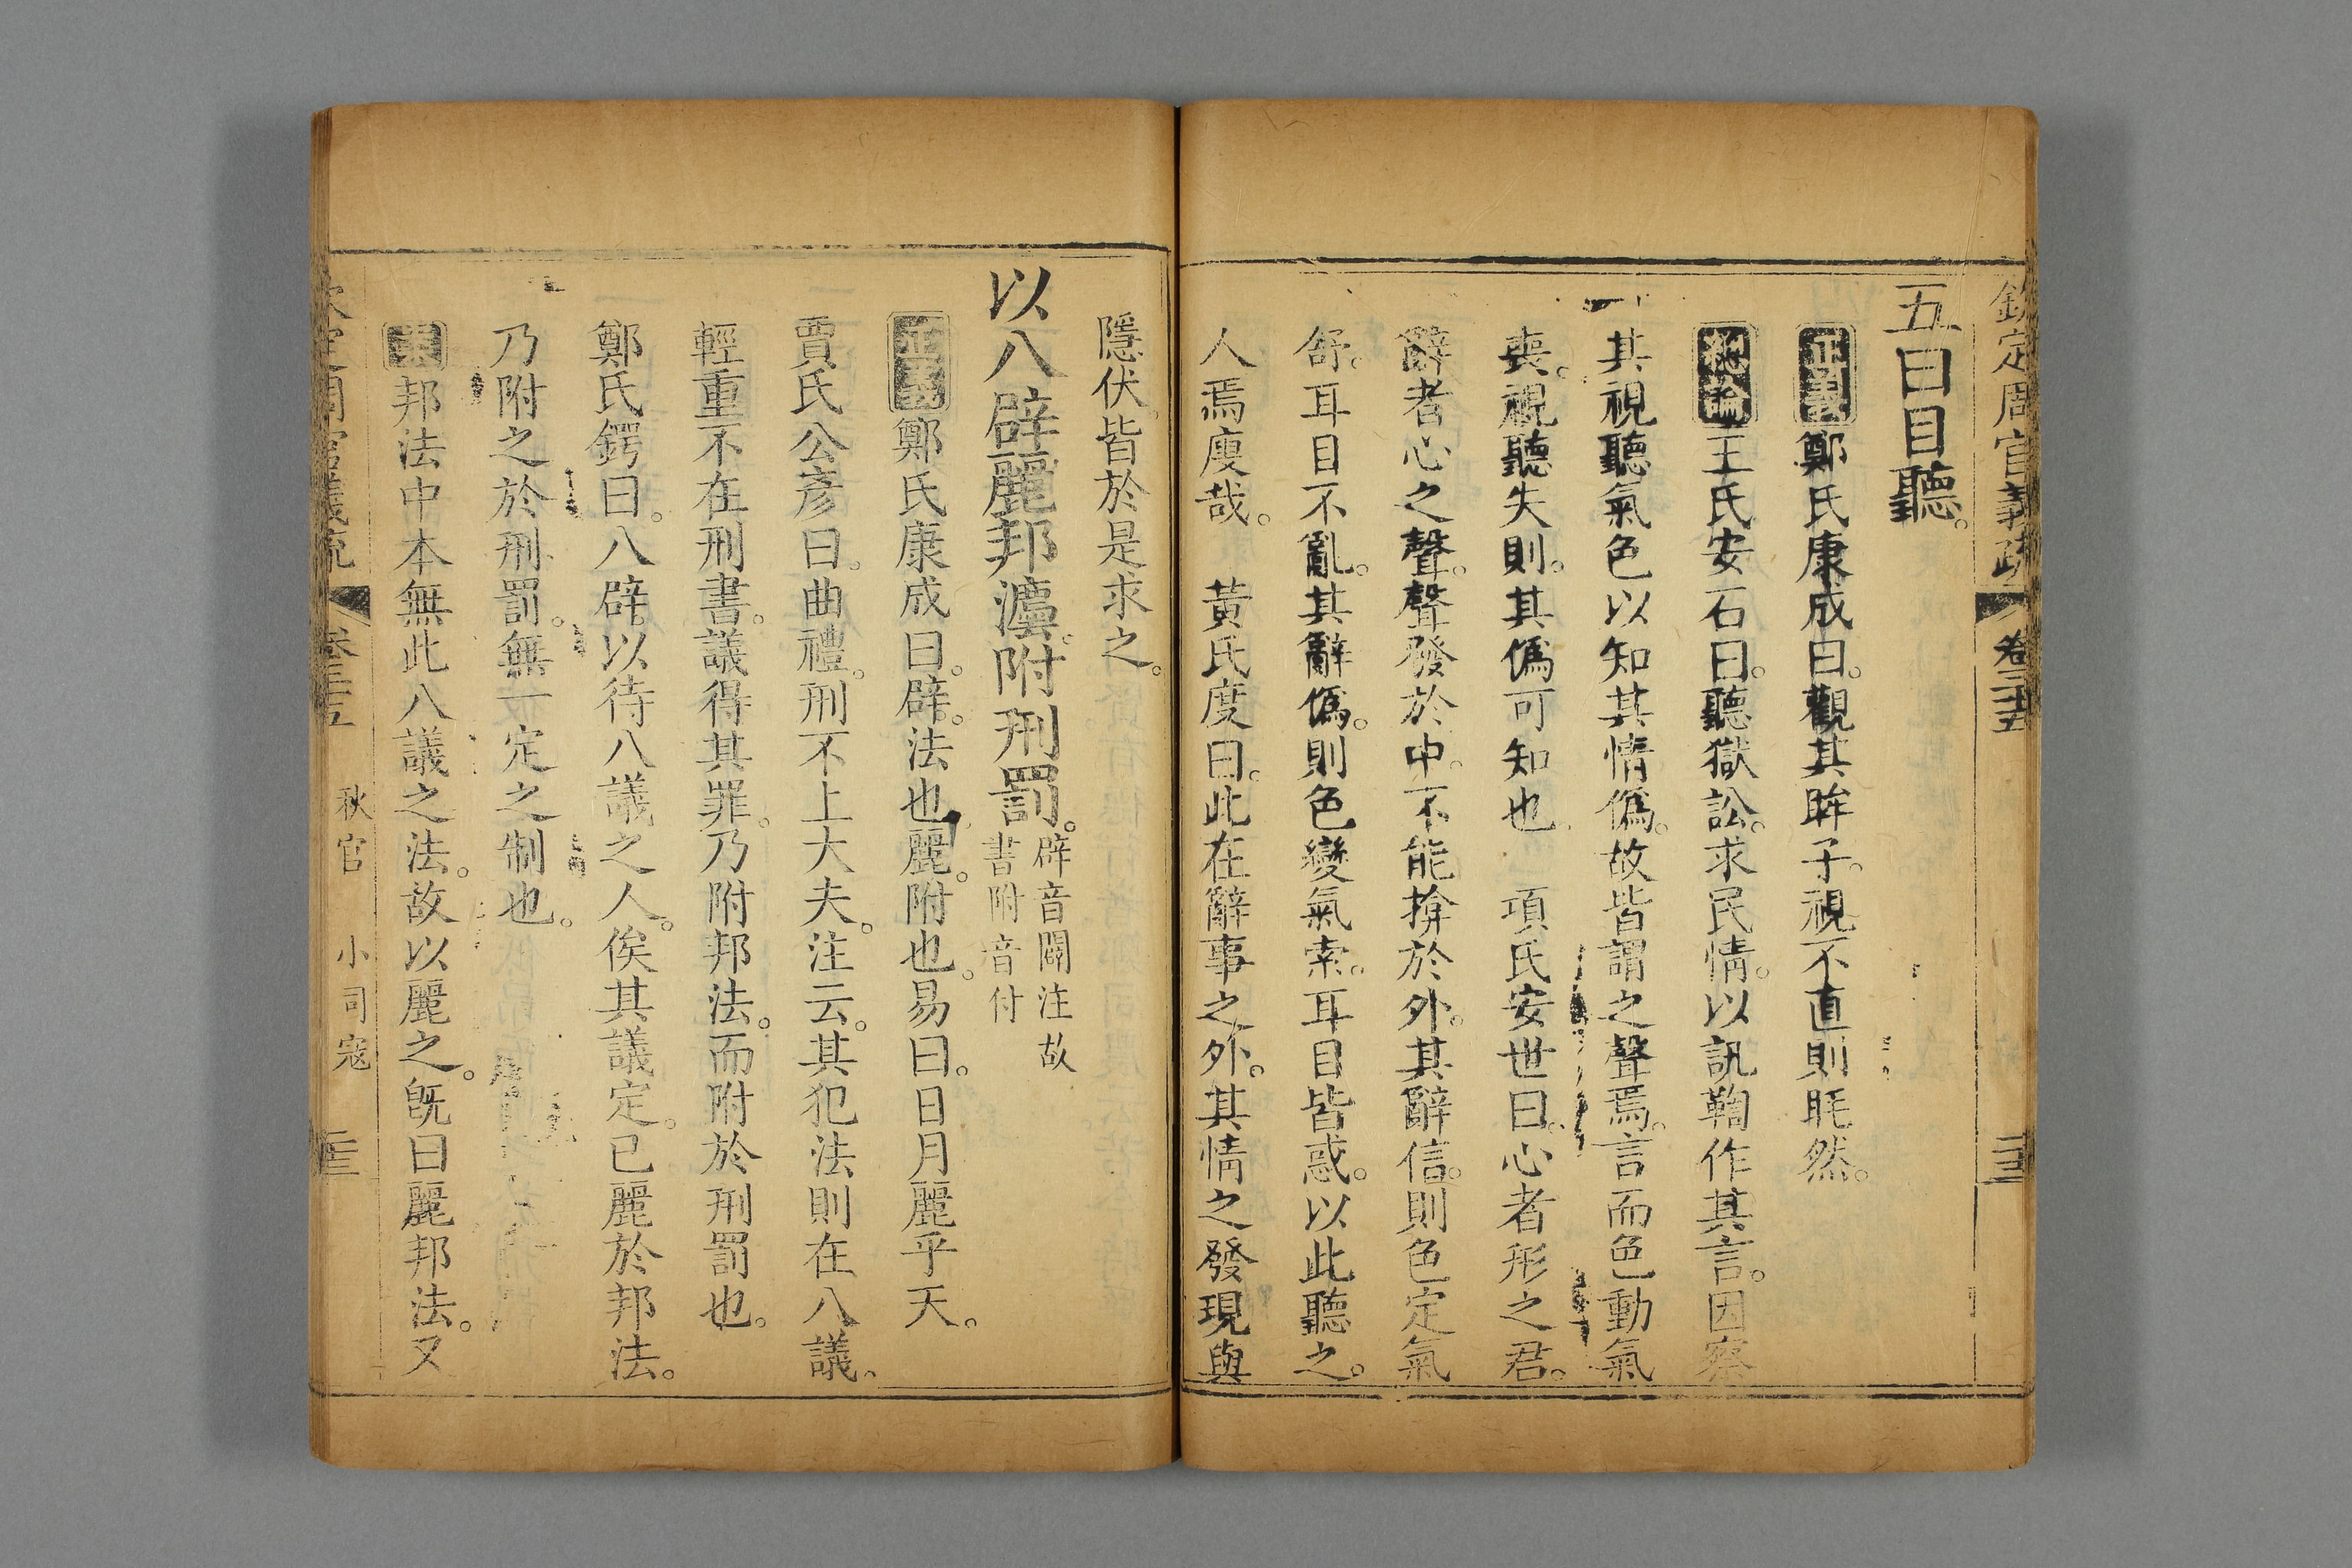 欽定周官義疏 卷三十五
五曰目聽。
正義鄭氏康成曰。觀其眸子。視不直則眊然。
總論王氏安石曰。聽獄訟。求民情。以訊鞫作其言。因察
其視聽氣色以知其情僞。故皆謂之聲焉。言而色動氣
喪。視聽失則。其僞可知也 項氏安世曰。心者形之君。
辭者心之聲。聲發於中。不能揜於外。其辭信。則色定氣
舒。耳目不亂。其辭僞。則色變氣索。耳目皆惑。以此聽之。
人焉廋哉。 黃氏度曰。此在辭事之外。其情之發現與
隱伏。皆於是求之。
以八辟麗邦灋。附刑罰。
辟音闢注故
書附音付
正義鄭氏康成曰。辟。法也。麗。附也。易曰。日月麗乎天。
賈氏公彥曰。曲禮。刑不上大夫。注云。其犯法則在八議。
輕重不在刑書。議得其罪。乃附邦法。而附於刑罰也。
鄭氏鍔曰。八辟。以待八議之人。俟其議定。已麗於邦法。
乃附之於刑罰。無一定之制也。
案邦法中本無此八議之法。故以麗之。旣曰麗邦法。又
欽定周官義疏 卷三十五 秋官 小司寇